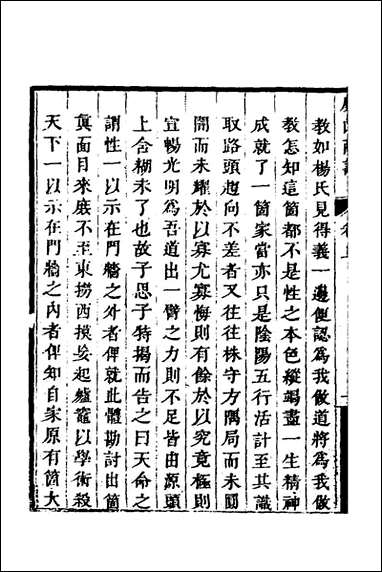 教如楊氏見得義一邊便認爲我做道將爲我做
教怎知這箇都不是性之本色縱竭盡一生精神
成就了一箇家當亦只是陰陽五行活計至其識
取路頭趨向不差者又往往株守方隅局而未圓
闇而未耀於以寡尤寡悔則有餘於以究竟極則
宣暢光明爲吾道出一臂之力則不足皆由源頭
上含糊未了也故子思子特揭而告之曰天命之
謂性一以示在門牆之外者俾就此體勘討出箇
眞面目來庶不至東撈西摸妄起爐竈以學術殺
天下一以示在門牆之内者俾知自家原有箇大